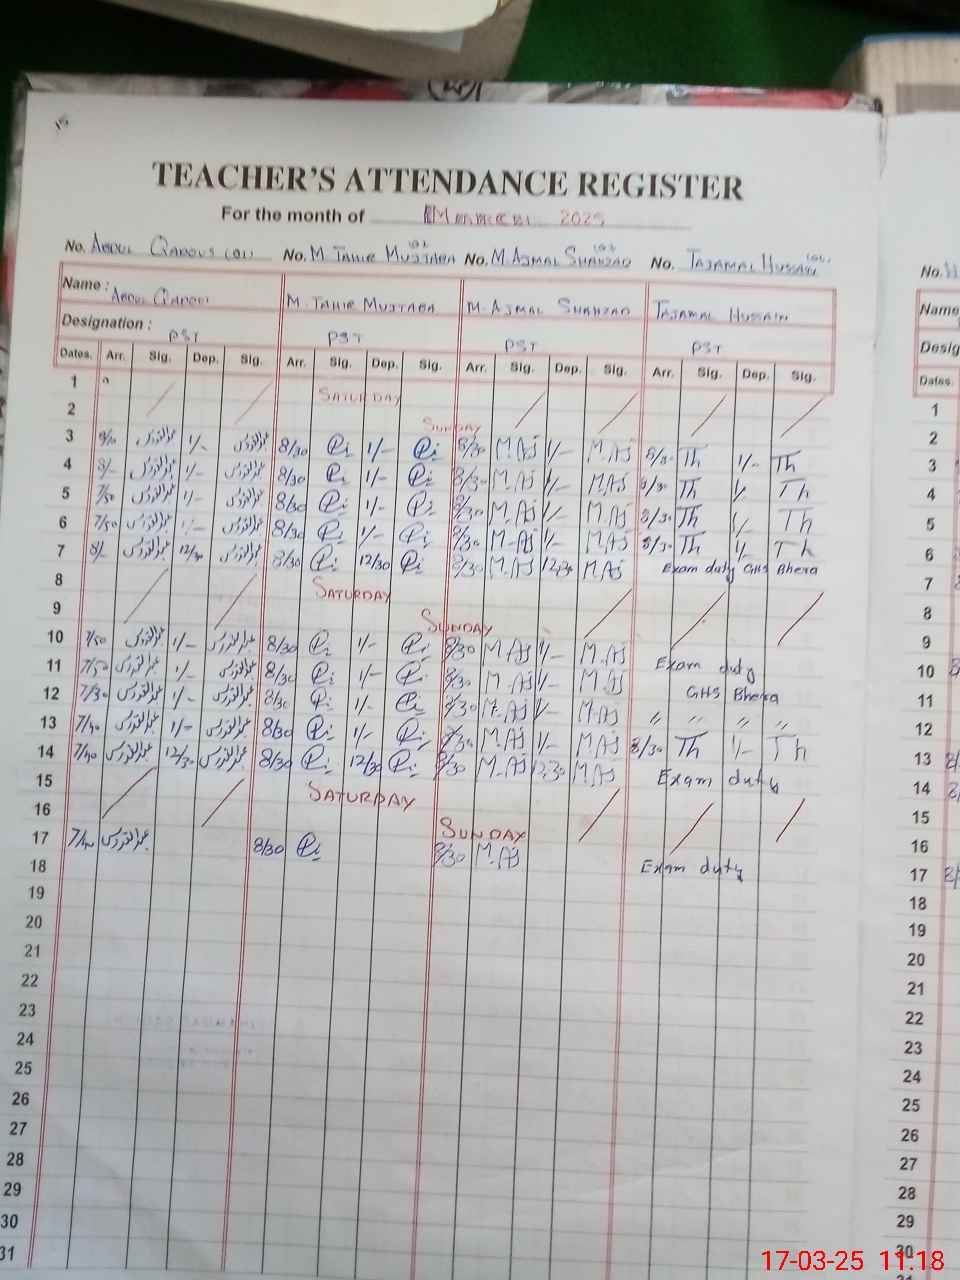 15
TEACHER'S ATTENDANCE REGISTER
For the month of March 2025
No. Abdul Qadous (01) No. M. Tahir Mujtaba No. M. Ajmal Shahzad No. Tajamal Hussain
Name : Abdul Qadous M. Tahir Mujtaba M. Ajmal Shahzad Tajamal Hussain
Designation : PST PST PST PST
Dates. Arr. Sig. Dep. Sig. Arr. Sig. Dep. Sig. Arr. Sig. Dep. Sig. Arr. Sig. Dep. Sig.
1 Saturday
2 Sunday
3 عبدالقدوس 1/- عبدالقدوس 8/30 1/- 8/30 M.Aj 1/- M.Aj 8/30 Th 1/- Th
4 8/- عبدالقدوس 1/- عبدالقدوس 8/30 1/- 8/30 M.Aj 1/- M.Aj 8/30 Th 1/- Th
5 7/50 عبدالقدوس 1/- عبدالقدوس 8/30 1/- 8/30 M.Aj 1/- M.Aj 8/30 Th 1/- Th
6 7/50 عبدالقدوس 1/- عبدالقدوس 8/30 1/- 8/30 M.Aj 1/- M.Aj 8/30 Th 1/- Th
7 8/- عبدالقدوس 12/30 عبدالقدوس 8/30 12/30 8/30 M.Aj 12/30 M.Aj Exam duty GHS Bhera
8 Saturday
9 Sunday
10 7/50 عبدالقدوس 1/- عبدالقدوس 8/30 1/- 8/30 M.Aj 1/- M.Aj Exam duty
11 7/50 عبدالقدوس 1/- عبدالقدوس 8/30 1/- 8/30 M.Aj 1/- M.Aj GHS Bhera
12 7/30 عبدالقدوس 1/- عبدالقدوس 8/30 1/- 8/30 M.Aj 1/- M.Aj " " " "
13 عبدالقدوس 1/- عبدالقدوس 8/30 1/- 8/30 M.Aj 1/- M.Aj 8/30 Th 1/- Th
14 عبدالقدوس 12/30 عبدالقدوس 8/30 12/30 8/30 M.Aj 12/30 M.Aj Exam duty
15 Saturday
16 Sunday
17 عبدالقدوس 8/30 8/30 M.Aj Exam duty
18
19
20
21
22
23
24
25
26
27
28
29
30
31
No.
Name
Desig
Dates.
1
2
3
4
5
6
7
8
9
10
11
12
13
14
15
16
17
18
19
20
21
22
23
24
25
26
27
28
29
30
17-03-25 11:18